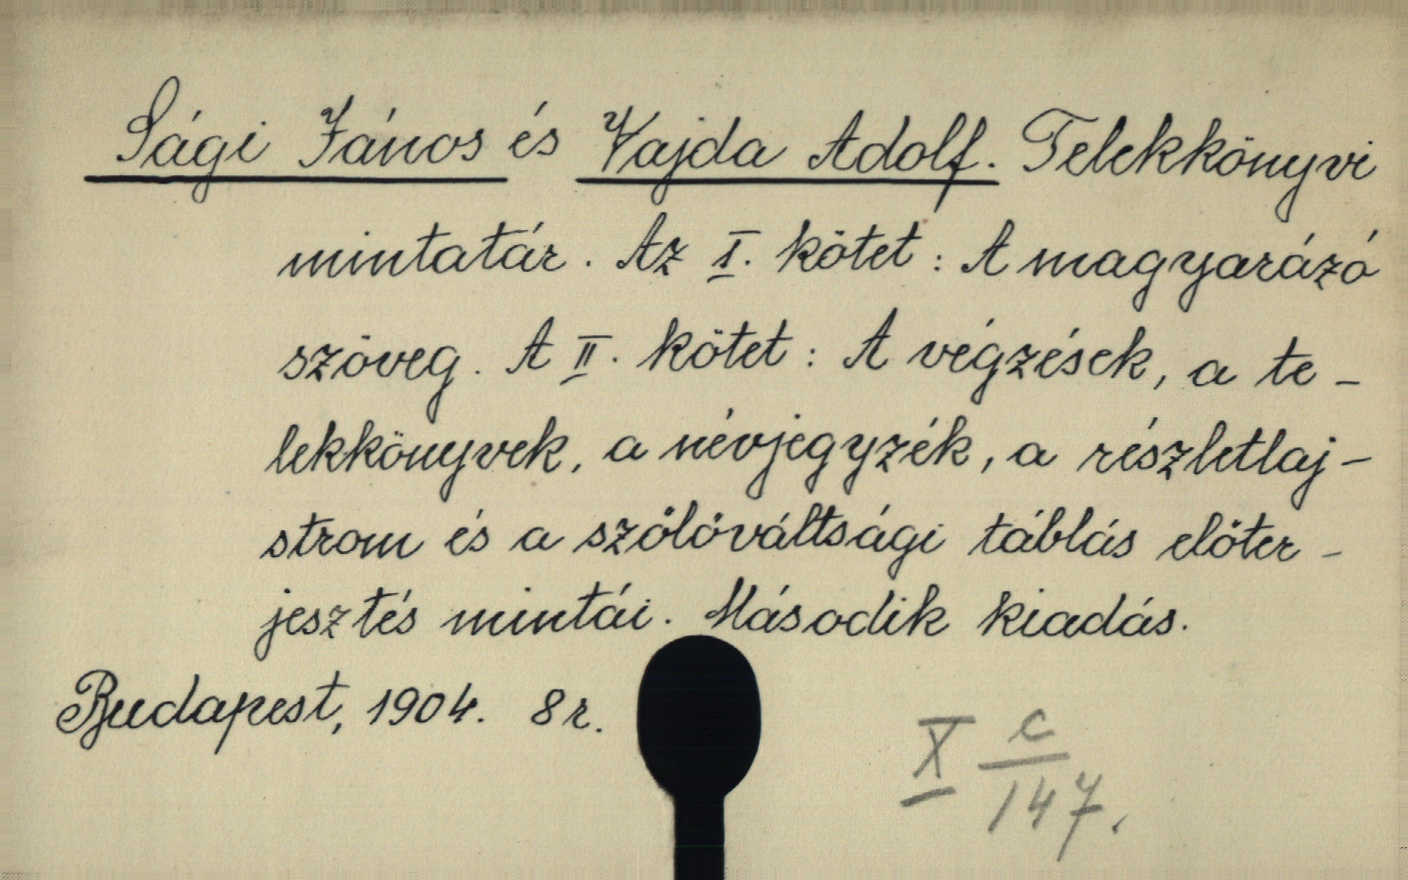 Sági János és Vajda Adolf. Telekkönyvi
mintatár. Az I. kötet: A magyarázó
szöveg. A II. kötet: A végzések, a te-
lekkönyvek, a névjegyzék, a részletlaj-
strom és a szőlőváltsági táblás előter-
jesztés mintái. Második kiadás.
Budapest, 1904. 8r.
X c/147.